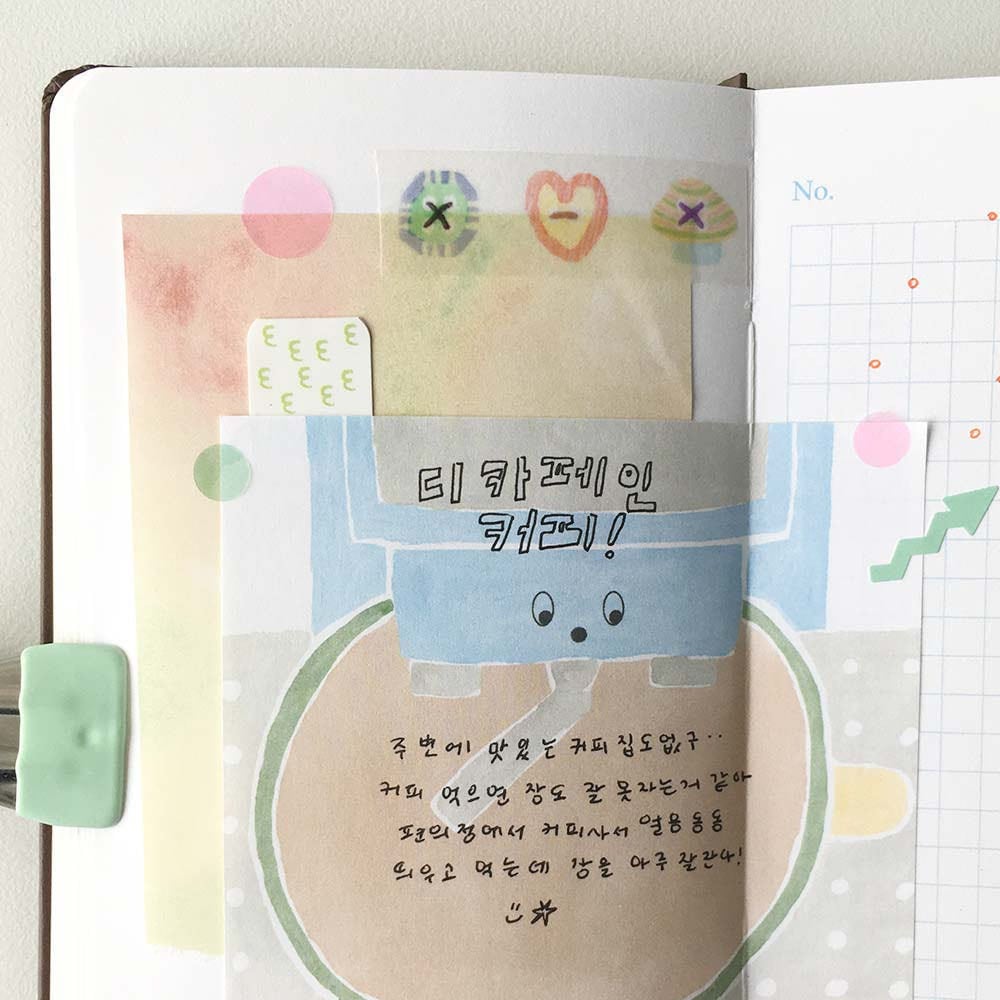 No.
디카페인
커피!
주변에 맛있는 커피집도없구..
커피 먹으면 잠도 잘 못자는거 같아
편의점에서 커피사서 얼음동동
띄우고 먹는데 잠을 아주 잘잔다!